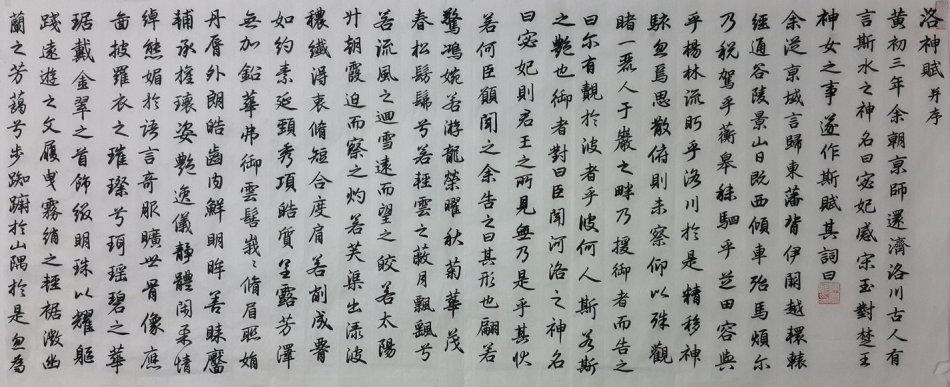 洛神賦并序
黃初三年余朝京師還濟洛川古人有
言斯水之神名曰宓妃感宋玉對楚王
神女之事遂作斯賦其詞曰
余從京域言歸東藩背伊闕越轘轅
經通谷陵景山日既西傾車殆馬煩尔
乃稅駕乎蘅皋秣駟乎芝田容與
乎楊林流眄乎洛川於是精移神
駭忽焉思散俯則未察仰以殊觀
睹一麗人于巖之畔乃援御者而告之
曰尔有覿於彼者乎彼何人斯若斯
之艷也御者對曰臣聞河洛之神名
曰宓妃則君王之所見無乃是乎其狀
若何臣願聞之余告之曰其形也翩若
驚鴻婉若游龍榮曜秋菊華茂
春松髣髴兮若輕雲之蔽月飄飄兮
若流風之迴雪遠而望之皎若太陽
升朝霞迫而察之灼若芙渠出淥波
穠纖得衷脩短合度肩若削成腰
如約素延頸秀項皓質呈露芳澤
無加鉛華弗御雲髻峩〻脩眉聯娟
丹脣外朗皓齒内鮮明眸善睞靨
輔承權瓌姿艷逸儀靜體閑柔情
綽態媚於語言奇服曠世骨像應
圖披羅衣之璀璨兮珥瑶碧之華
琚戴金翠之首飾綴明珠以耀軀
踐遠遊之文履曳霧綃之輕裾微幽
蘭之芳藹兮步踟躕於山隅於是忽焉